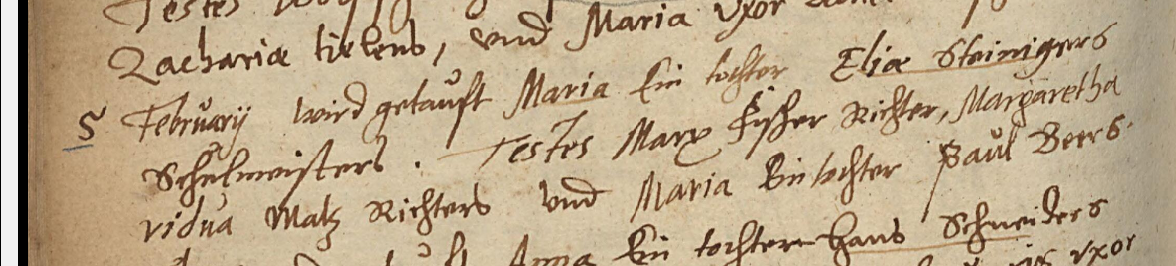 Testes
Zachariæ tielens, vnd Maria vxor
5 February wird getauft Maria Ein tochter Eliæ Steinigers
Schulmeisters. Testes Marx Fischer Richter, Margaretha
vidua Matz Richters vnd Maria Ein tochter Paul Beers.
Anna Ein tochter Hans Schneiders
vxor